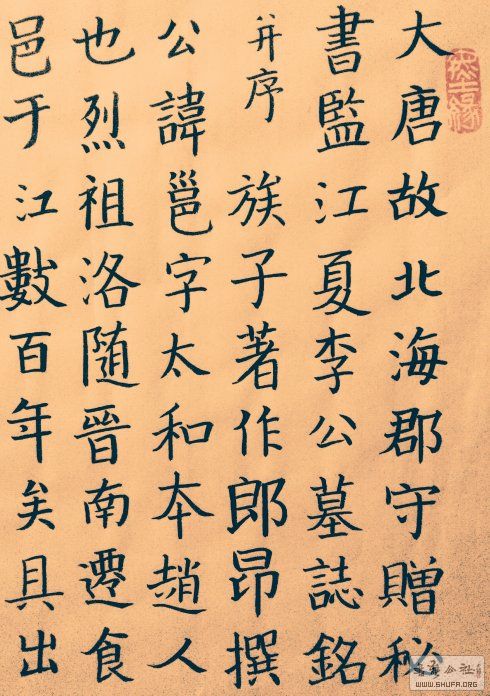 大唐故北海郡守贈秘
書監江夏李公墓誌銘
并序 族子著作郎昂撰
公諱邕字太和本趙人
也烈祖洛隨晉南遷食
邑于江數百年矣具出
WWW.SHUFA.ORG